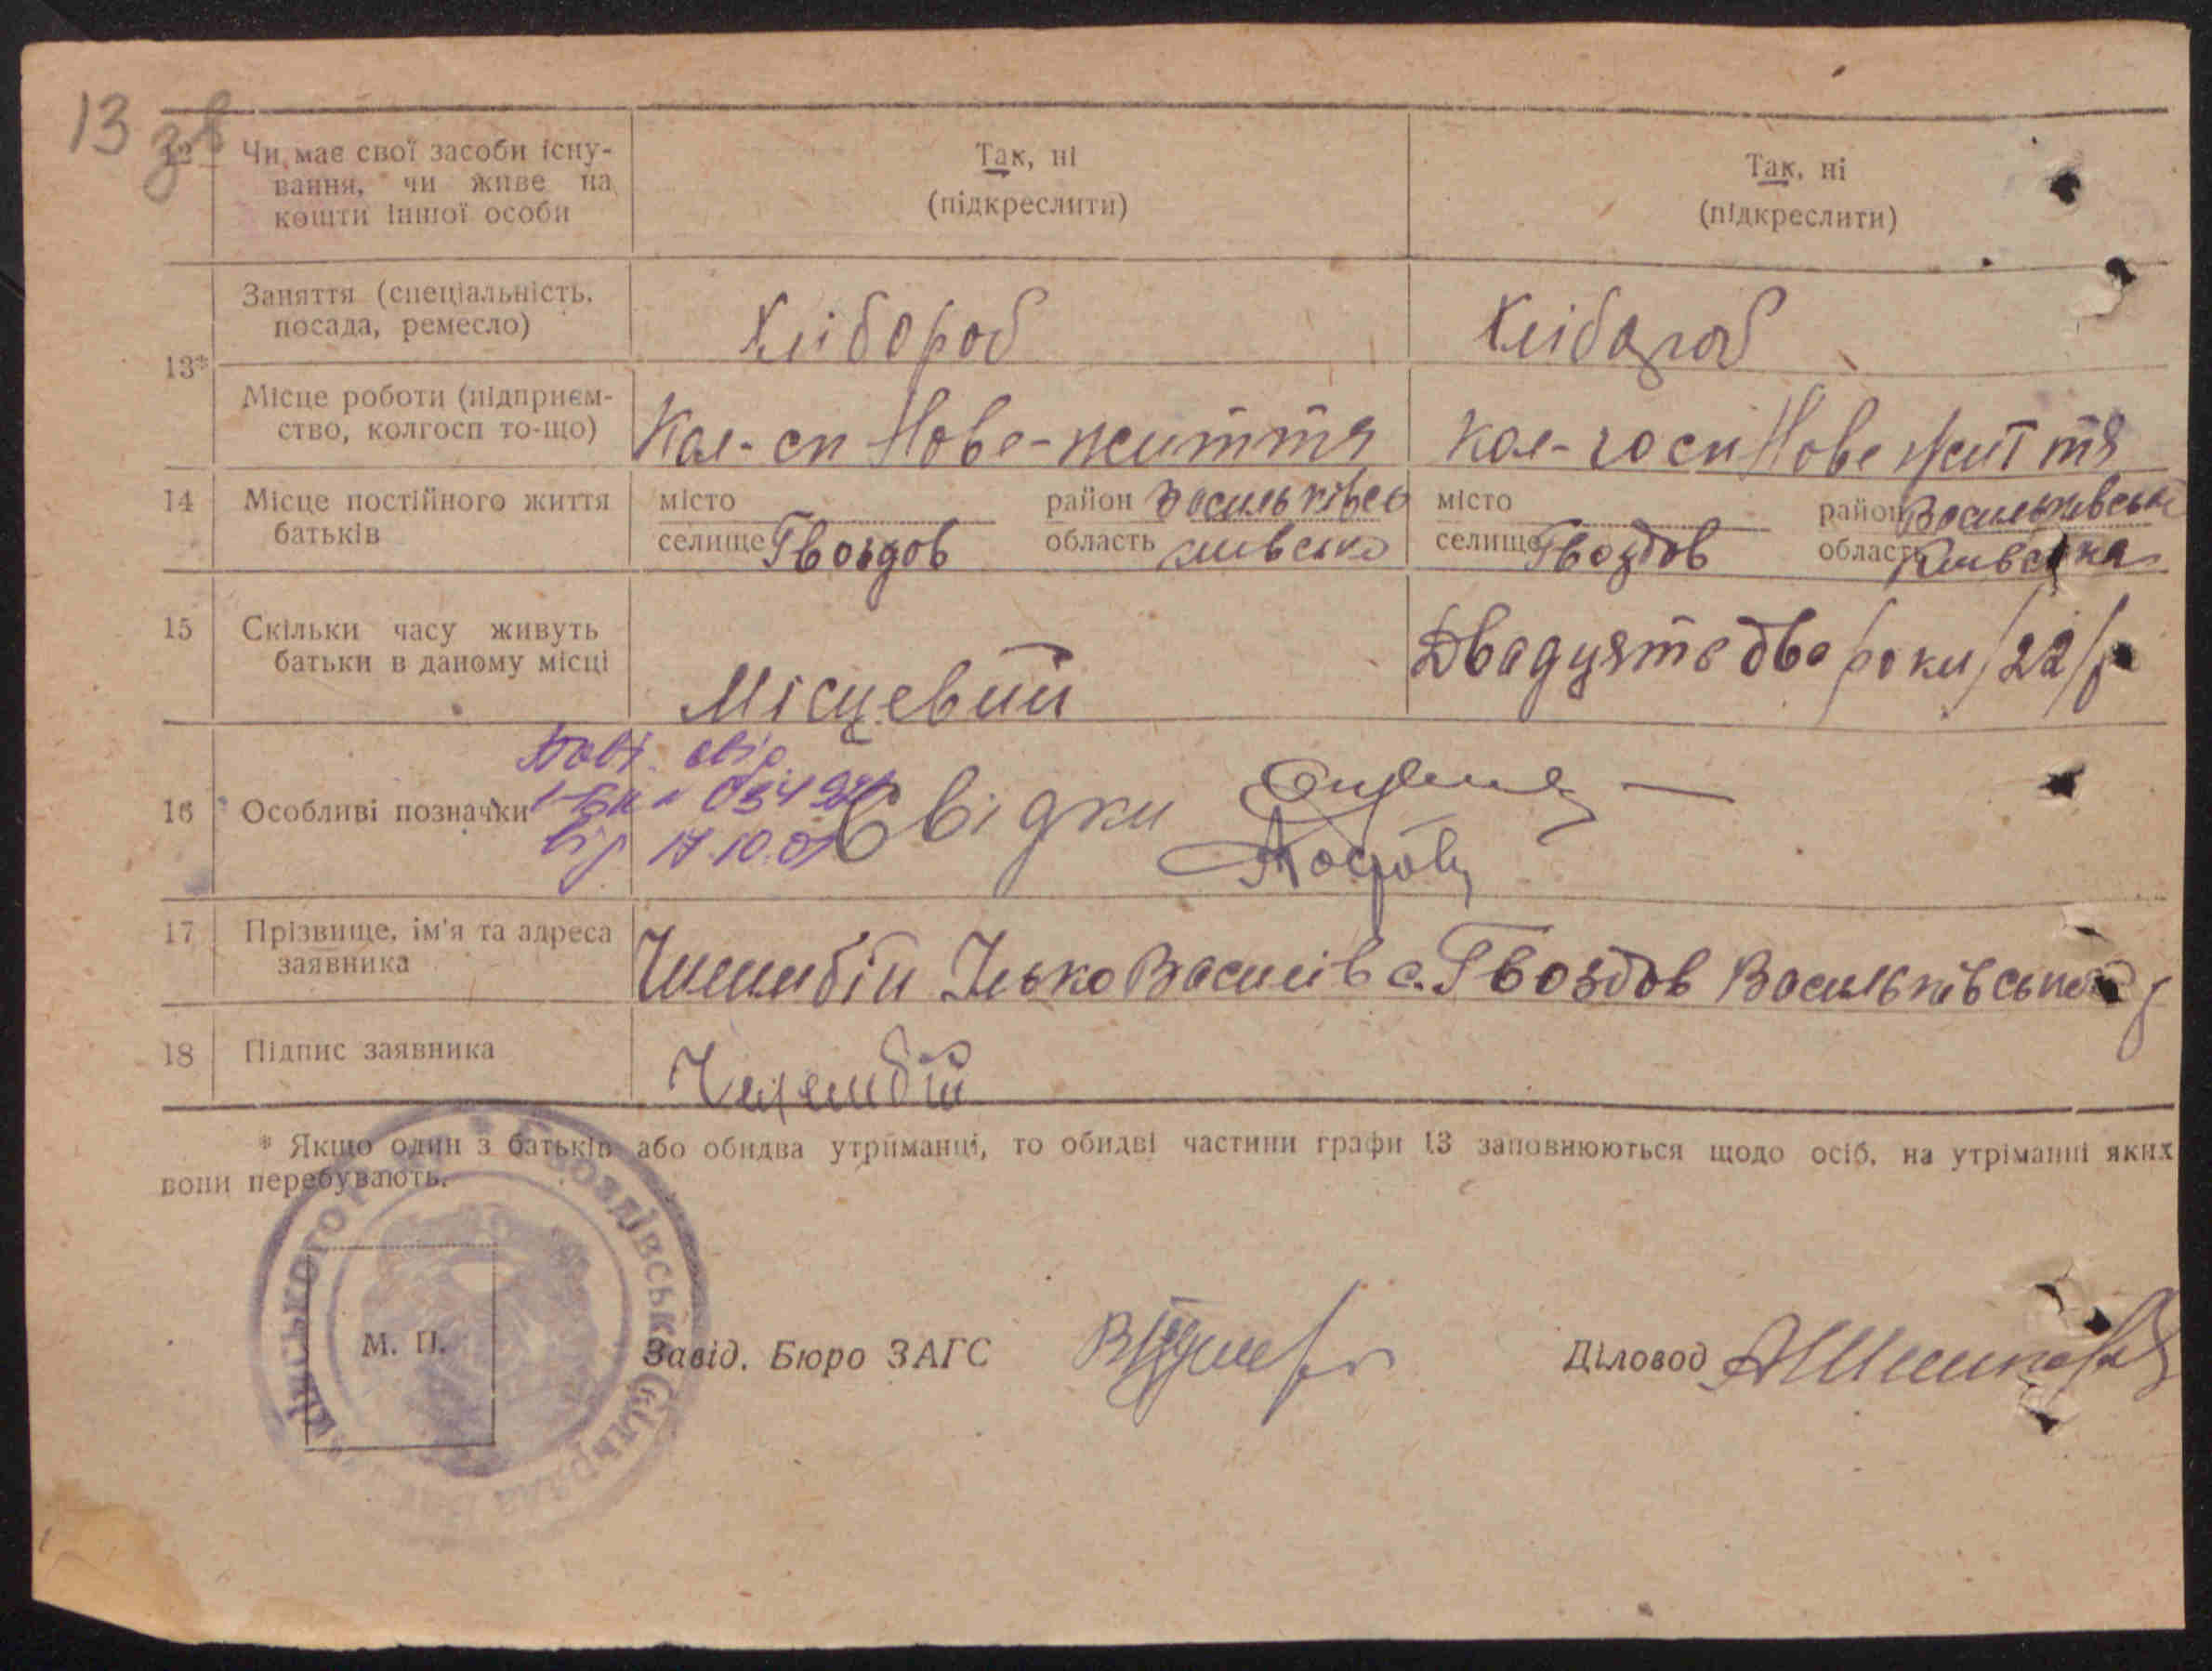 13 зв
Чи має свої засоби існу-
вання, чи живе на
кошти іншої особи
Так, ні
(підкреслити)
Так, ні
(підкреслити)
13*
Заняття (спеціальність,
посада, ремесло)
Хлібороб
Хлібороб
Місце роботи (підприєм-
ство, колгосп то-що)
Кол-сп Нове-життя
Кол-госп Нове життя
14
Місце постійного життя
батьків
місто
район Васильківсь
селище Гвоздов
область Київсько
місто
район Васильківські
селище Гвоздов
область Київська
15
Скільки часу живуть
батьки в даному місці
Місцевий
Двадцять два роки /22/р
16
Особливі позначки
Повт. свід.
І-БК №
від 17.10.07
Свідки
17
Прізвище, ім'я та адреса
заявника
Ілько Васил​ів с. Гвоздов Васильківсько р
18
Підпис заявника
* Якщо один з батьків або обидва утриманці, то обидві частини графи 13 заповнюються щодо осіб, на утріманні яких
вони перебувають.
Гвоздівська Сільрада
М. П.
Завід. Бюро ЗАГС
Діловод